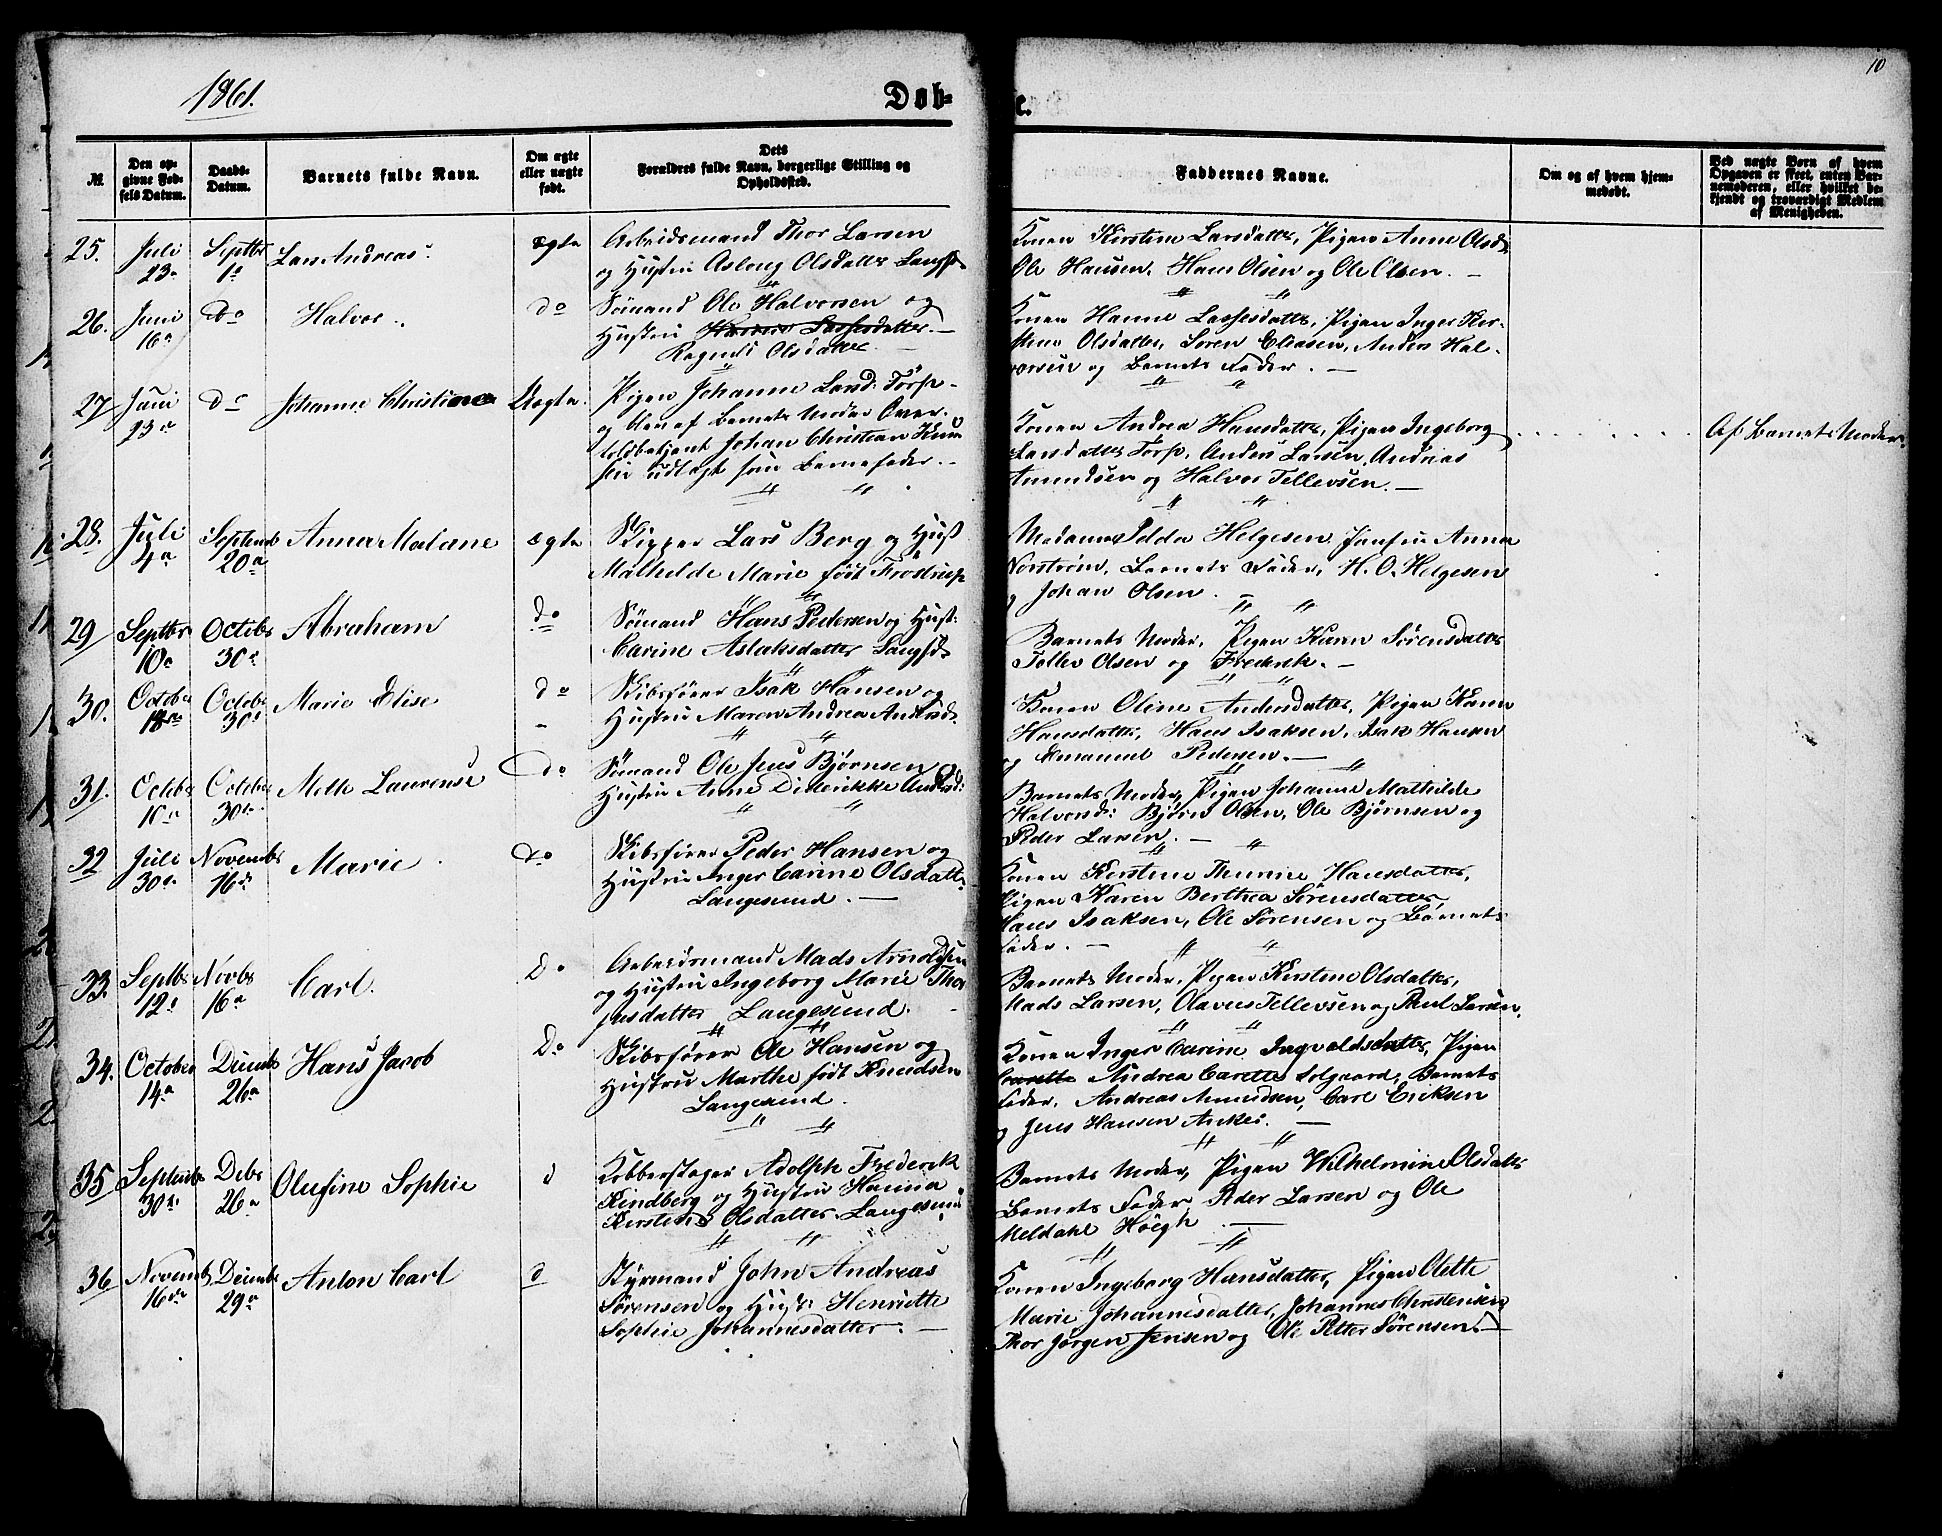 10
1861.
Døb-
te.
№
Den op-
givne Fød-
sels Datum.
Daabs-
Datum.
Barnets fulde Navn.
Om ægte
eller uægte
født.
Dets
Forældres fulde Navn, borgerlige Stilling og
Opholdssted.
Faddernes Navne.
Om og af hvem hjem-
medøbt.
Ved uægte Børn af hvem
Opgaven er skeet, enten Bar-
nemoderen, eller hvilket be-
kjendt og troværdigt Medlem
af Menigheden.
25.
Juli
23
Septbr
1
Lars Andreas.
ægte
Arbeidsmand Thor Larsen
og Hustru Asloug Olsdatter Langs
Konen Kirstine Larsdatter, Pigen Anne Olsd
Ole Hansen, Hans Olsen og Ole Olsen.
26.
Juni
16
do
Halvor.
do
Sømand Ole Halvorsen og
Hustru Hanne Lassesdatter.
Ragnild Olsdatter
Konen Hanne Lassesdatter, Pigen Inger Kir-
stine Olsdatter, Søren Eliasen, Anders Hal-
vorsen og Barnets Fader.
27
Juni
23
do
Johanne Christiane
Uægte.
Pigen Johanne Larsd: Torp
og blev af Barnets Moder Over-
toldbetjent Johan Christian Knud
sen udlagt som Barnefader.
Konen Andrea Hansdatter, Pigen Ingeborg
Larsdatter Torp, Anders Larsen, Andreas
Amundsen og Halvor Tellevsen.
Af Barnets Moder.
28.
Juli
4
Septemb
20
Anna Malane
ægte
Skipper Lars Berg og Hust
Mathilde Marie født Frostrup
Madame Helgesen, Jomfru Anna
Norstrøm, Barnets Fader, H. O. Helgesen
og Johan Olsen.
29
Septbr
10
Octobr
30
Abraham
do
Sømand Hans Pedersen og Hust:
Carine Aslaksdatter Langsd
Barnets Moder, Pigen Karen Sørensdatter
Tellev Olsen og Frederik.
30.
Octobr
18
Octobr
30
Marie Elise
do
Skibsfører Isak Hansen og
Hustru Maren Andrea Andersd.
Konen Oline Andersdatter, Pigen Karen
Hansdatter, Hans Isaksen, Isak Hansen
og Emanuel Pedersen.
31.
Octobr
10
Octobr
30
Mette Laurense
do
Sømand Ole Jens Bjørnsen og
Hustru Anne Diderikke Andersd:
Barnets Moder, Pigen Johanne Mathilde
Halvorsd: Bjørn Olsen, Ole Bjørnsen og
Peder Larsen.
32
Juli
30
Novembr
16
Marie
do
Skibsfører Peder Hansen og
Hustru Inger Carine Olsdatt
Langesund.
Konen Kirstine Thurine Hansdatter,
Pigen Karen Berthea Sørensdatter,
Hans Isaksen, Ole Sørensen og Barnets
Fader.
33.
Septbr
12
Novbr
16
Carl.
Do
Arbeidsmand Mads Arnoldsen
og Hustru Ingeborg Marie Tho
jusdatter Langesund.
Barnets Moder, Pigen Kirstine Olsdatter,
Mads Larsen, Olaves Tellevsen og Poul Larsen.
34.
October
14
Decembr
26
Hans Jacob
Do
Skibsfører Ole Hansen og
Hustru Marthe født Knudsen
Langesund.
Konen Inger Carine Ingvoldsdatter, Pigen
Carette Andrea Carette Solgaard, Barnets
Fader, Andreas Amundsen, Carl Eriksen
og Jens Hansen Anker.
35
Septembr
30
Debr
26
Olufine Sophie
d
Kobberslager Adolph Frederik
Kindberg og Hustru Hanna
Kirstine Olsdatter Langesund
Barnets Moder, Pigen Wilhelmine Olsdatter
Barnets Fader, Peder Larsen og Ole
Meldahl Höegh.
36
Novemb
16
Decembr
29
Anton Carl
d
Styrmand John Andreas
Sørensen og Hust: Henriette
Sophie Johannesdatter.
Konen Ingeborg Hansdatter, Pigen Olette
Marie Johannesdatter, Johannes Christensen,
Thor Jørgen Jensen og Ole Petter Sørensen.